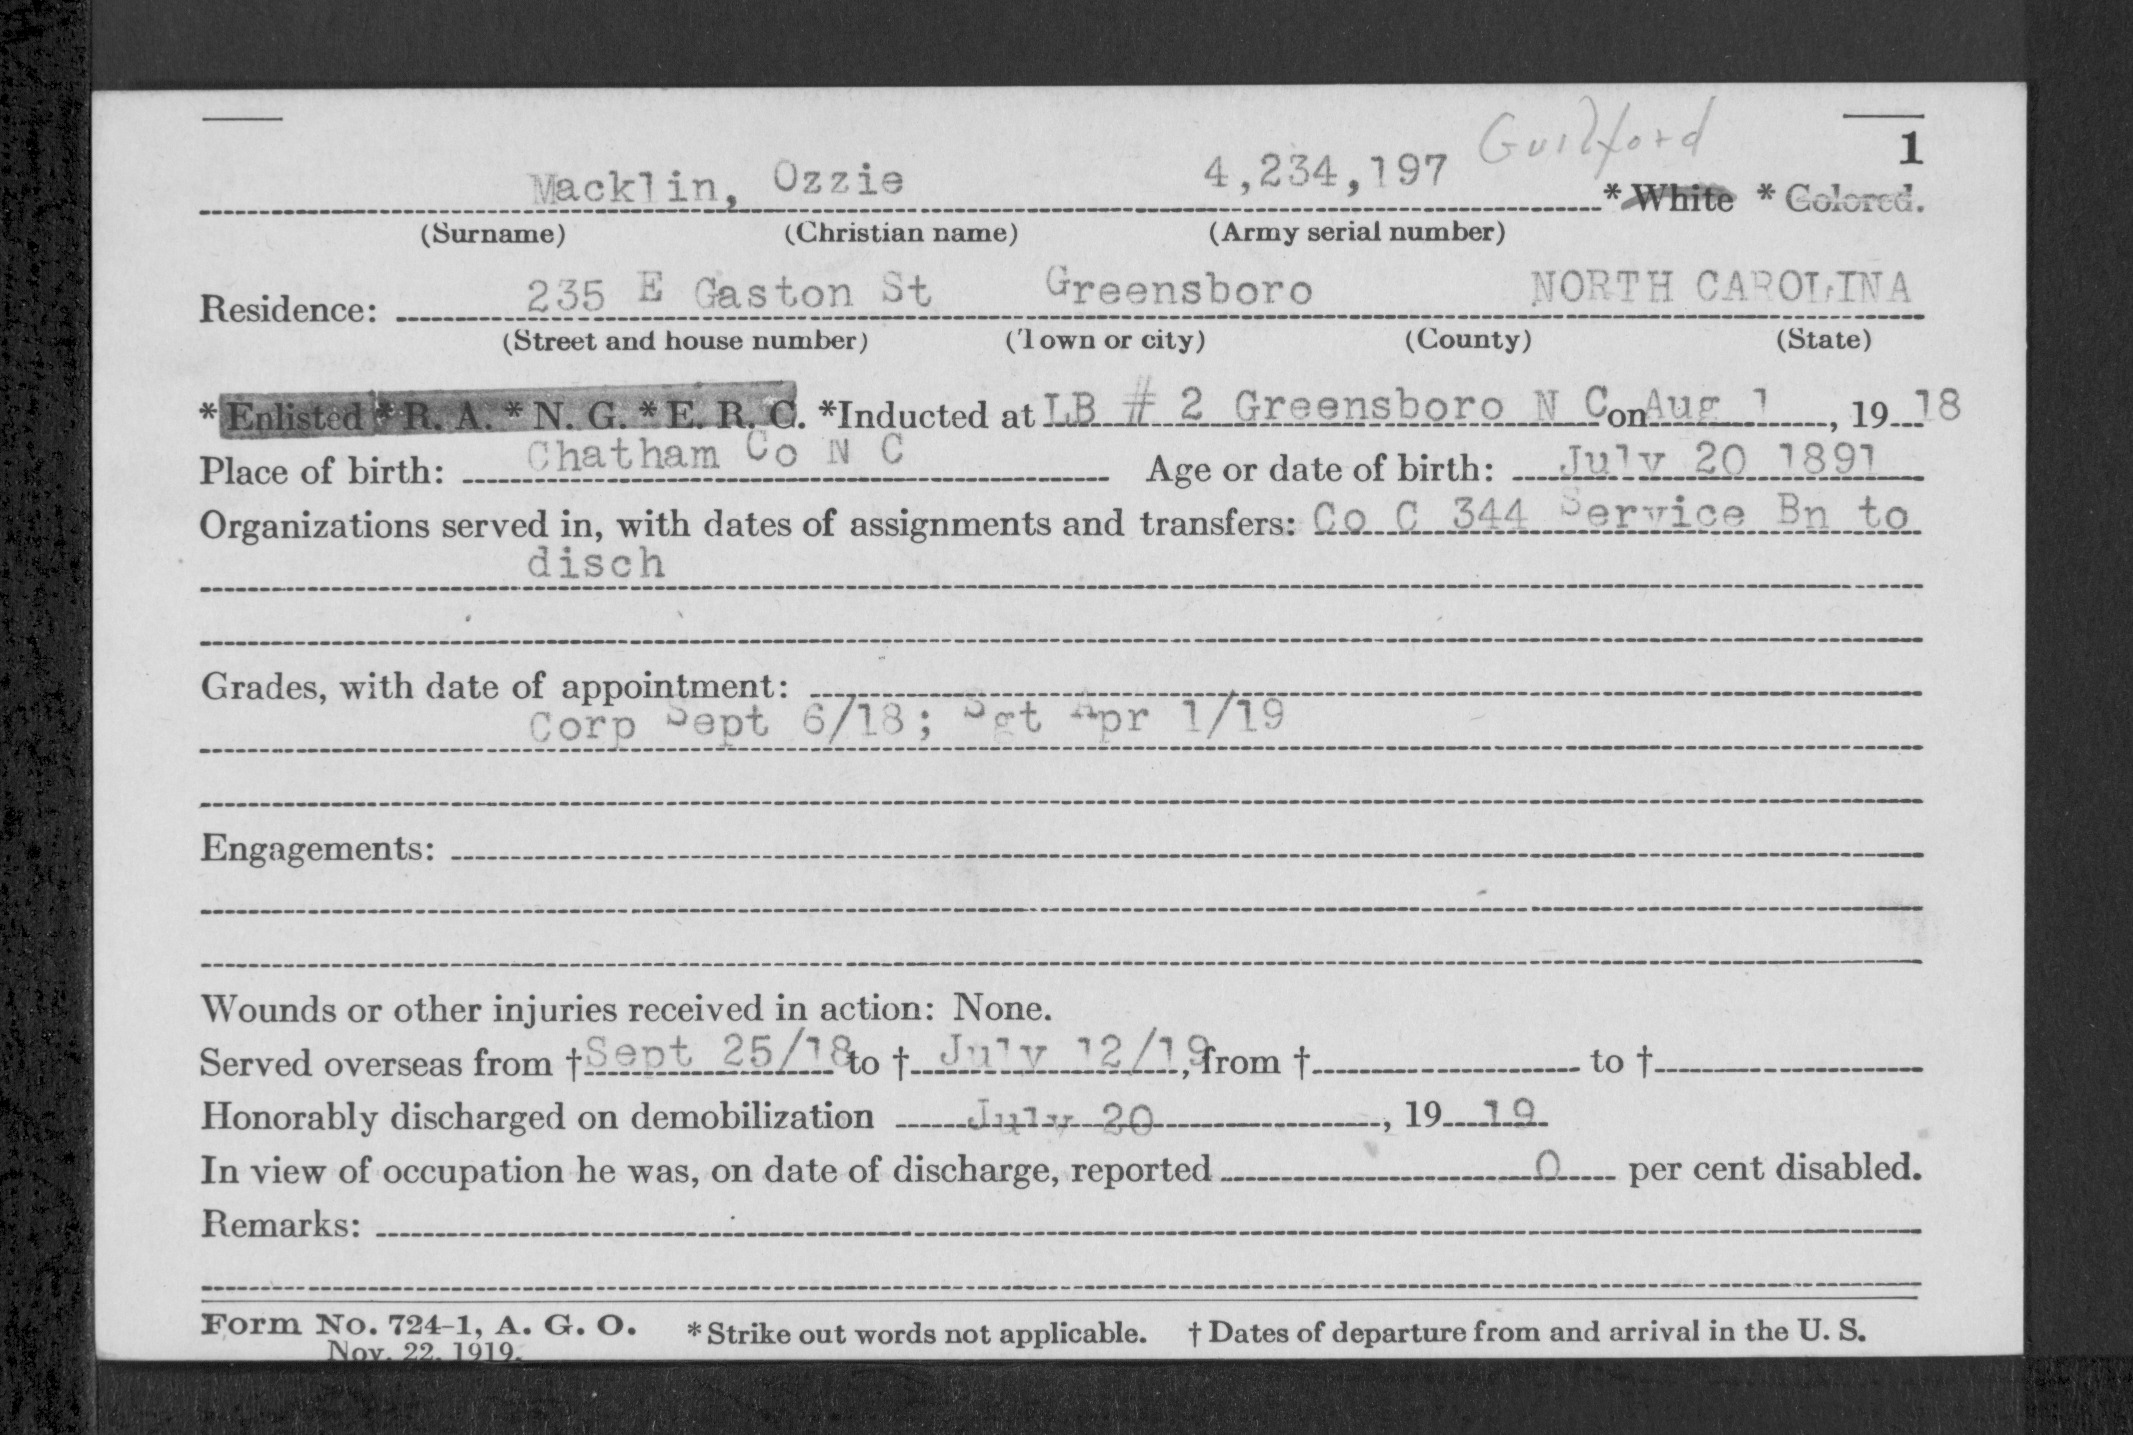 Guilford
1
Macklin, Ozzie 4,234,197 * White * Colored.
(Surname) (Christian name) (Army serial number)
Residence: 235 E Gaston St Greensboro NORTH CAROLINA
(Street and house number) (Town or city) (County) (State)
* Enlisted * R. A. * N. G. * E. R. C. *Inducted at LB # 2 Greensboro N C on Aug 1, 19 18
Place of birth: Chatham Co N C Age or date of birth: July 20 1891
Organizations served in, with dates of assignments and transfers: Co C 344 Service Bn to
disch
Grades, with date of appointment:
Corp Sept 6/18; Sgt Apr 1/19
Engagements:
Wounds or other injuries received in action: None.
Served overseas from † Sept 25/18 to † July 12/19, from † to †
Honorably discharged on demobilization July 20, 19 19
In view of occupation he was, on date of discharge, reported 0 per cent disabled.
Remarks:
Form No. 724-1, A. G. O. * Strike out words not applicable. † Dates of departure from and arrival in the U. S.
Nov. 22, 1919.